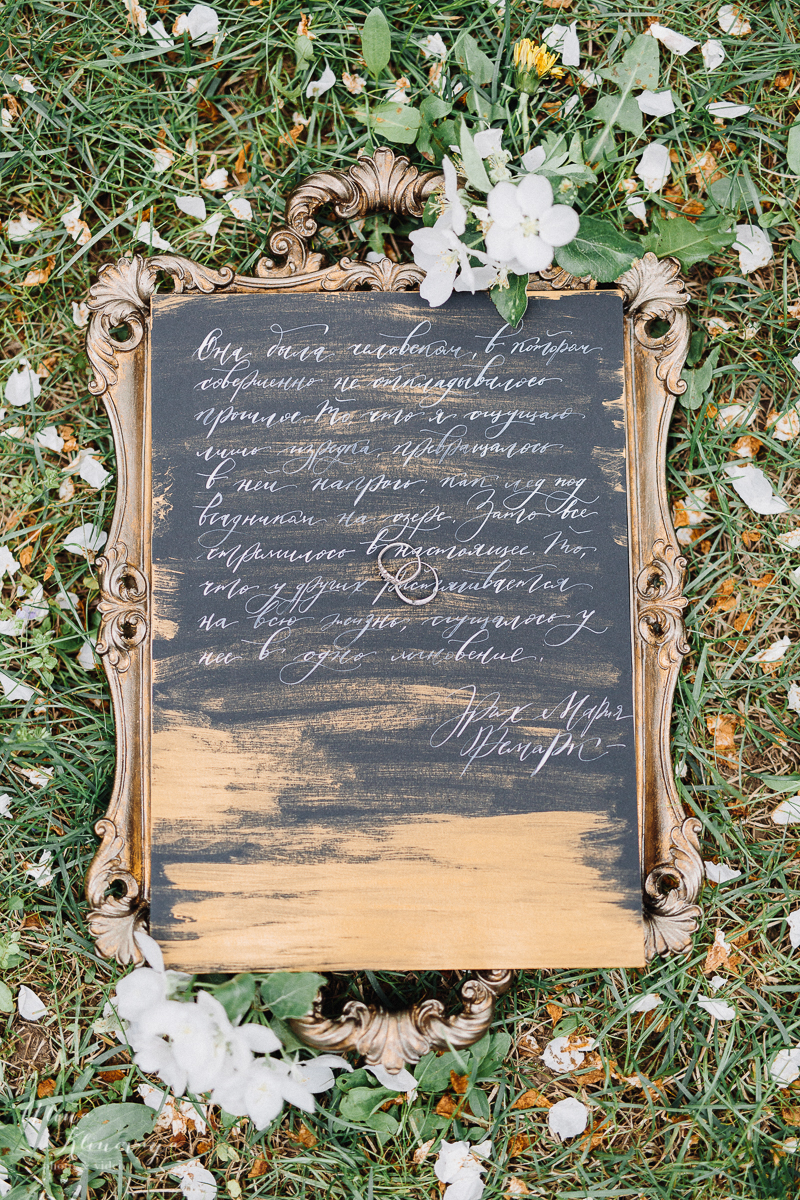 Она была человеком, в котором
совершенно не откладывалось
прошлое. То что я ощущаю
лишь изредка, превращалось
в ней напрочь, как лед под
всадником на озере. Зато все
стремилось в настоящее. То,
что у других растягивается
на всю жизнь, сгущалось у
нее в одно мгновение.
Эрих Мария
Ремарк